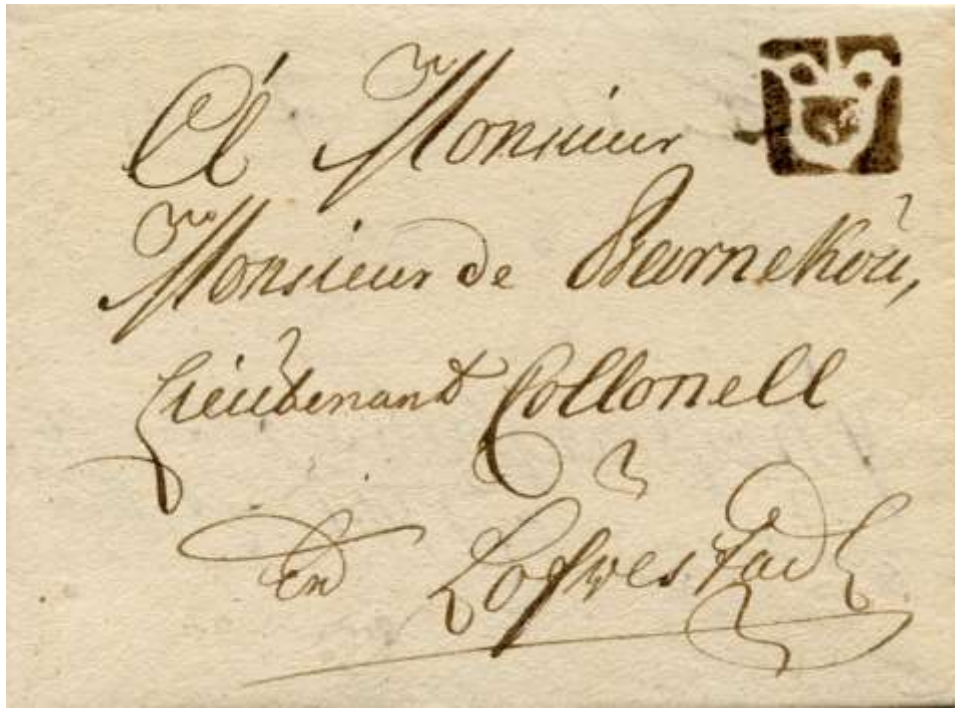 A Monsieur
Monsieur de Barnekòu,
Lieutenant Collonell
en Lofwestad